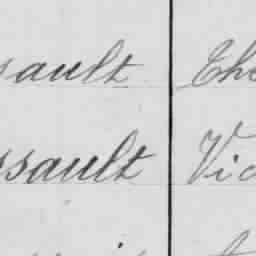 sault The
ssault Vic